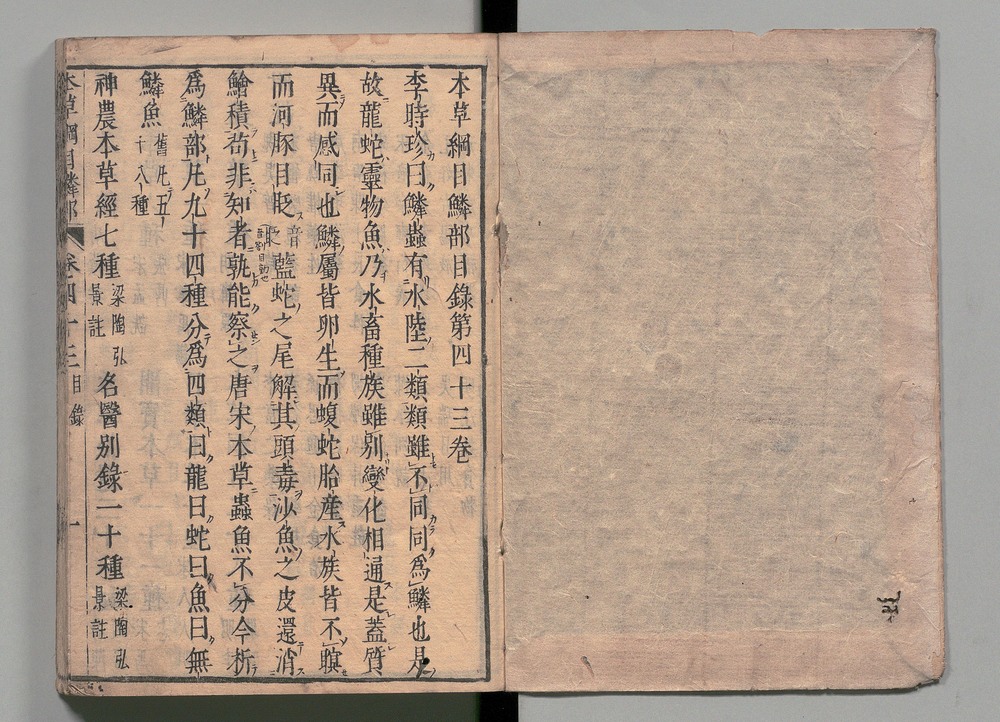 本草綱目鱗部目錄第四十三卷
李時珍曰鱗蟲有水陸二類類雖不同同爲鱗也是
故龍蛇靈物魚乃水畜種族雖別變化相通是蓋質
異而感同也鱗屬皆卵生而蝮蛇胎產水族皆不瞑
而河豚目眨音𥅴蛇之尾解其頭毒沙魚之皮還消
鱠積苟非知者孰能察之唐宋本草蟲魚不分今析
爲鱗部凡九十四種分爲四類曰龍曰蛇曰魚曰無
鱗魚舊凡五十八種
神農本草經七種梁陶弘景註 名醫別錄一十種梁陶弘景註
本草綱目鱗部 卷四十三目錄 一